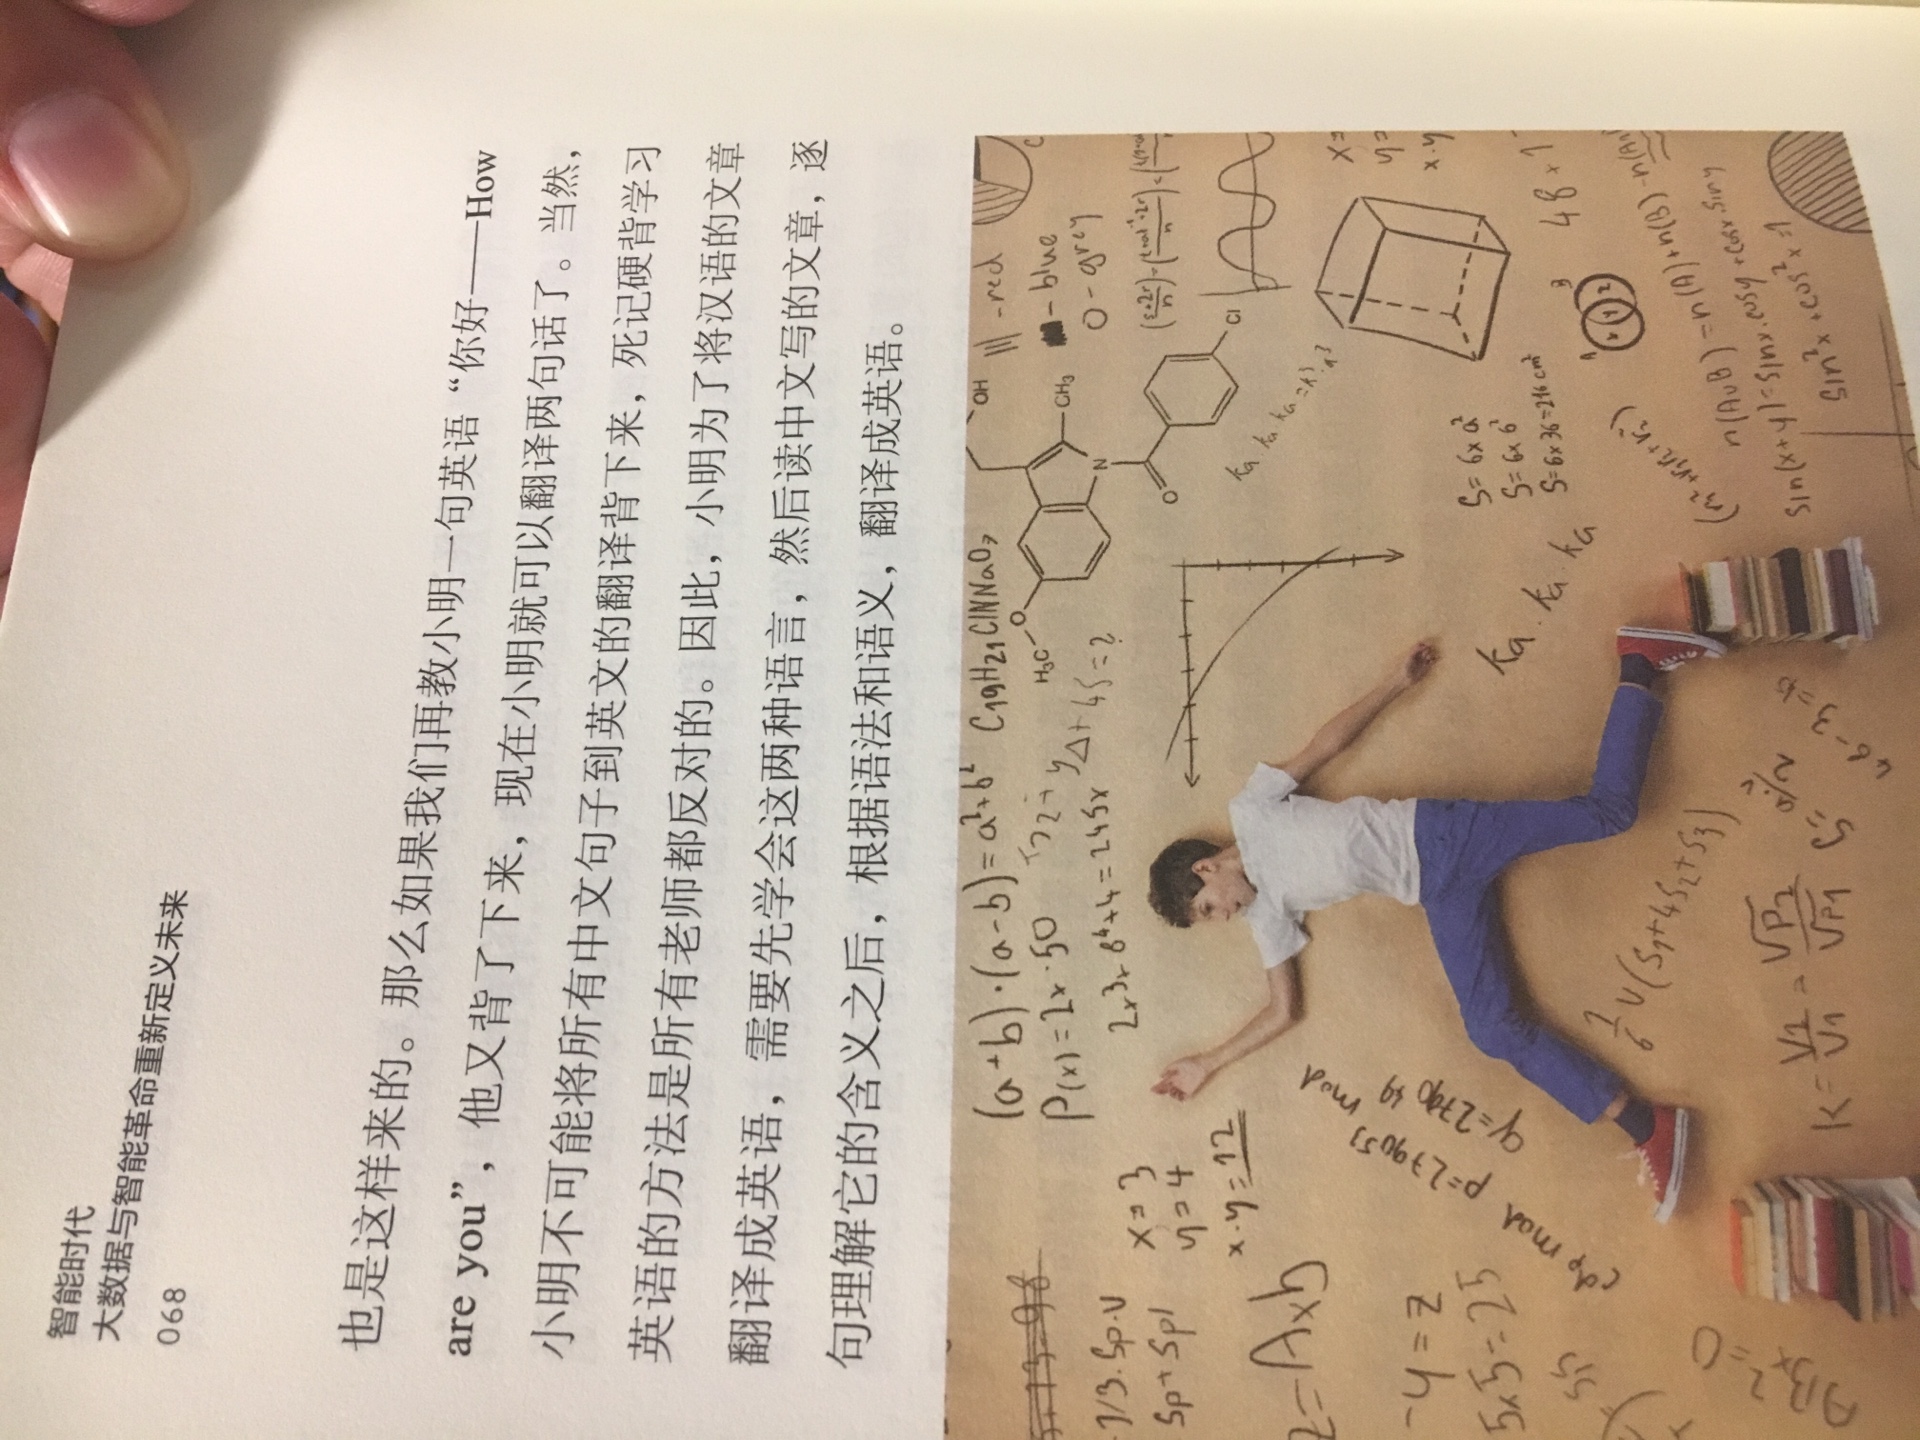 智能时代
大数据与智能革命重新定义未来
068
也是这样来的。那么如果我们再教小明一句英语“你好——How
are you”，他又背了下来，现在小明就可以翻译两句话了。当然，
小明不可能将所有中文句子到英文的翻译背下来，死记硬背学习
英语的方法是所有老师都反对的。因此，小明为了将汉语的文章
翻译成英语，需要先学会这两种语言，然后读中文写的文章，逐
句理解它的含义之后，根据语法和语义，翻译成英语。
(a+b)·(a-b)=a²+b²
C19H21ClNNaO7
OH
CH₃
N
O
Cl
H₃C
O
-red
-blue
O-grey
P(x)=2x·50
x=3
y=4
x·y=12
p=279053 mod
S=6xa²
S=6x6²
S=6x36=216cm²
n(A∪B)=n(A)+n(B)
sin(x+y)=sinx·cosy+cosx·siny
sin²x+cos²x=1
-y=z
5x5=25